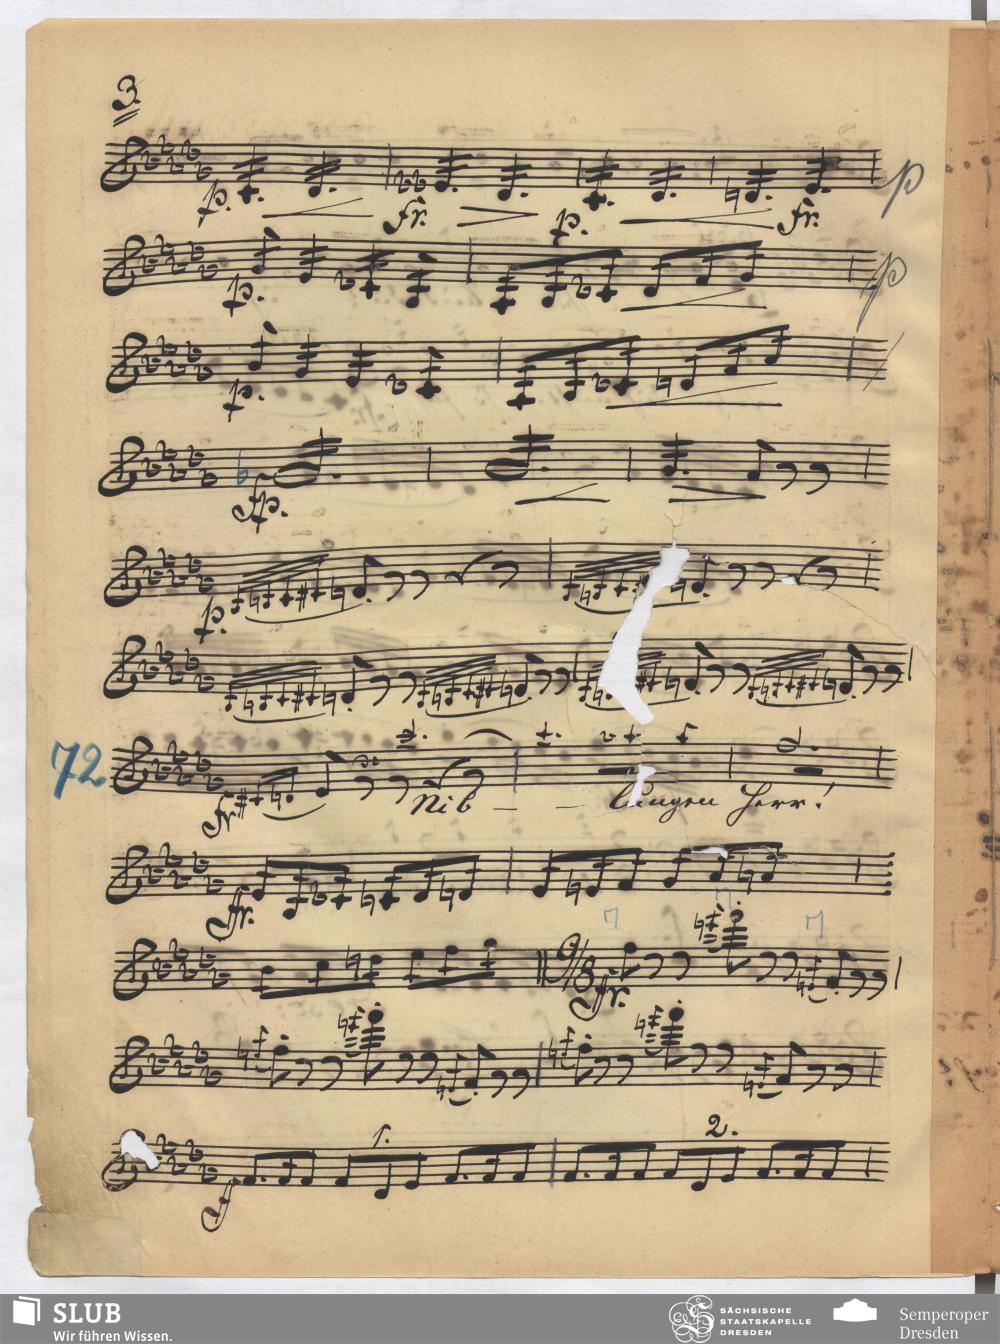 3.
p. fr. p. fr. p
p. p
p.
fp.
p.
72
fr Nib - - lungen Herr!
ffr.
9/8 ffr.
1. 2.
f
SLUB
Wir führen Wissen.
SÄCHSISCHE
STAATSKAPELLE
DRESDEN
Semperoper
Dresden